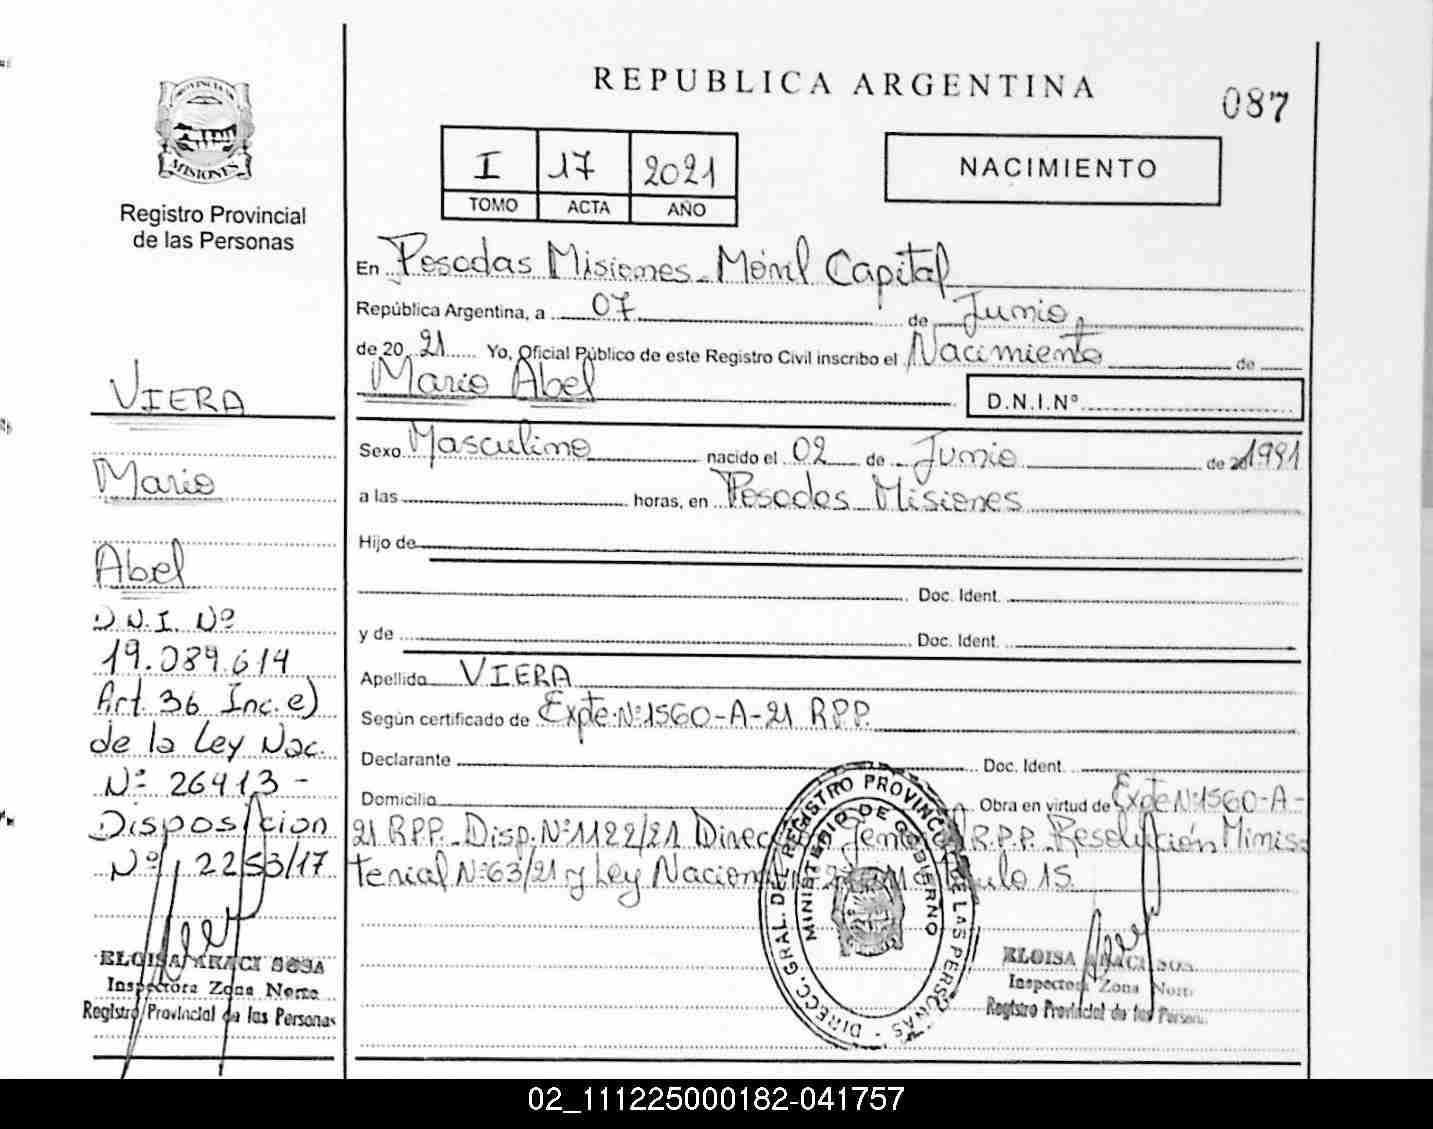 PROVINCIA DE
MISIONES
Registro Provincial
de las Personas
VIERA
Mario
Abel
D.N.I. Nº
19.089.614
Art. 36 Inc. e)
de la Ley Nac.
Nº 26413 -
Disposicion
Nº 2253/17
ELOISA ARACI SOSA
Inspectora Zona Norte
Registro Provincial de las Personas
REPUBLICA ARGENTINA
087
I 17 2021
TOMO ACTA AÑO
NACIMIENTO
En Posadas Misiones - Móvil Capital
República Argentina, a 07 de Junio
de 20 21 Yo, Oficial Público de este Registro Civil inscribo el Nacimiento de
Mario Abel
D.N.I.Nº
Sexo Masculino nacido el 02 de Junio de 20 1991
a las horas, en Posadas Misiones
Hijo de
Doc. Ident.
y de Doc. Ident.
Apellido VIERA
Según certificado de Expte. Nº 1560-A-21 R.P.P.
Declarante Doc. Ident.
Domicilio Obra en virtud de Expte Nº 1560-A-
21 RPP. Disp. Nº 1122/21 R.P.P. Resolución Minis-
terial Nº 63/21 y Ley 15
DIRECC. GRAL. DEL REGISTRO PROVINCIAL DE LAS PERSONAS
MINISTERIO DE GOBIERNO
ELOISA ARACI SOS
Inspectora Zona Norte
Registro Provincial de las Person
02_111225000182-041757